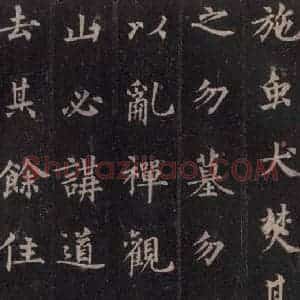 施䖝犬焚
之勿墓勿
以亂禪觀
山必講道
去其餘住